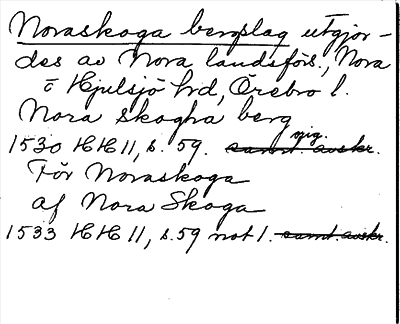 Noraskoga bergslag utgjor-
des av Nora landsförs., Nora
o Hjulsjö hrd, Örebro l.
Nora skogha berg
1530 HH 11, s. 59. orig. samt. avskr.
För Noraskoga
af Nora Skoga
1533 HH 11, s. 59 not 1. samt. avskr.